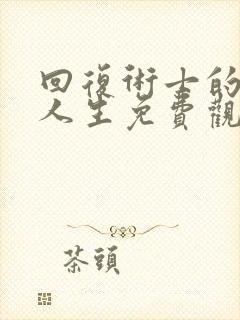 回復術士的
人生免費觀
茶頭